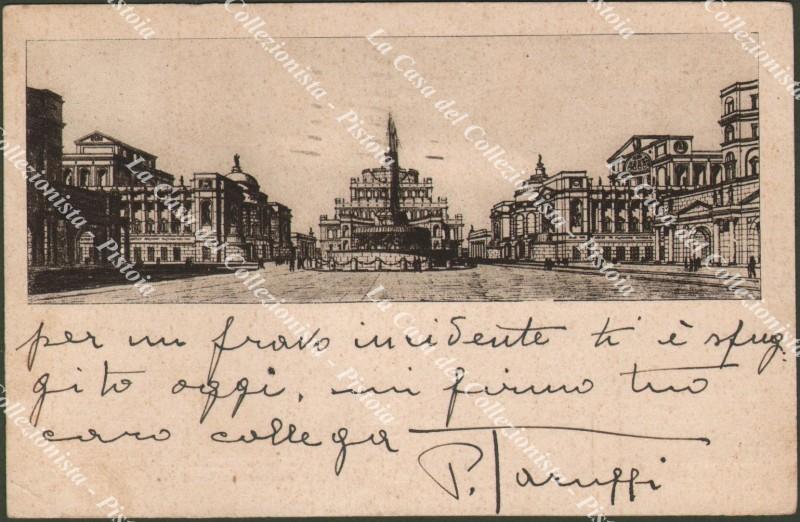 per un fravo incidente ti è sfug-
gito oggi. mi firmo tuo
caro collega
P. Taruffi
La Casa del Collezionista - Pistoia